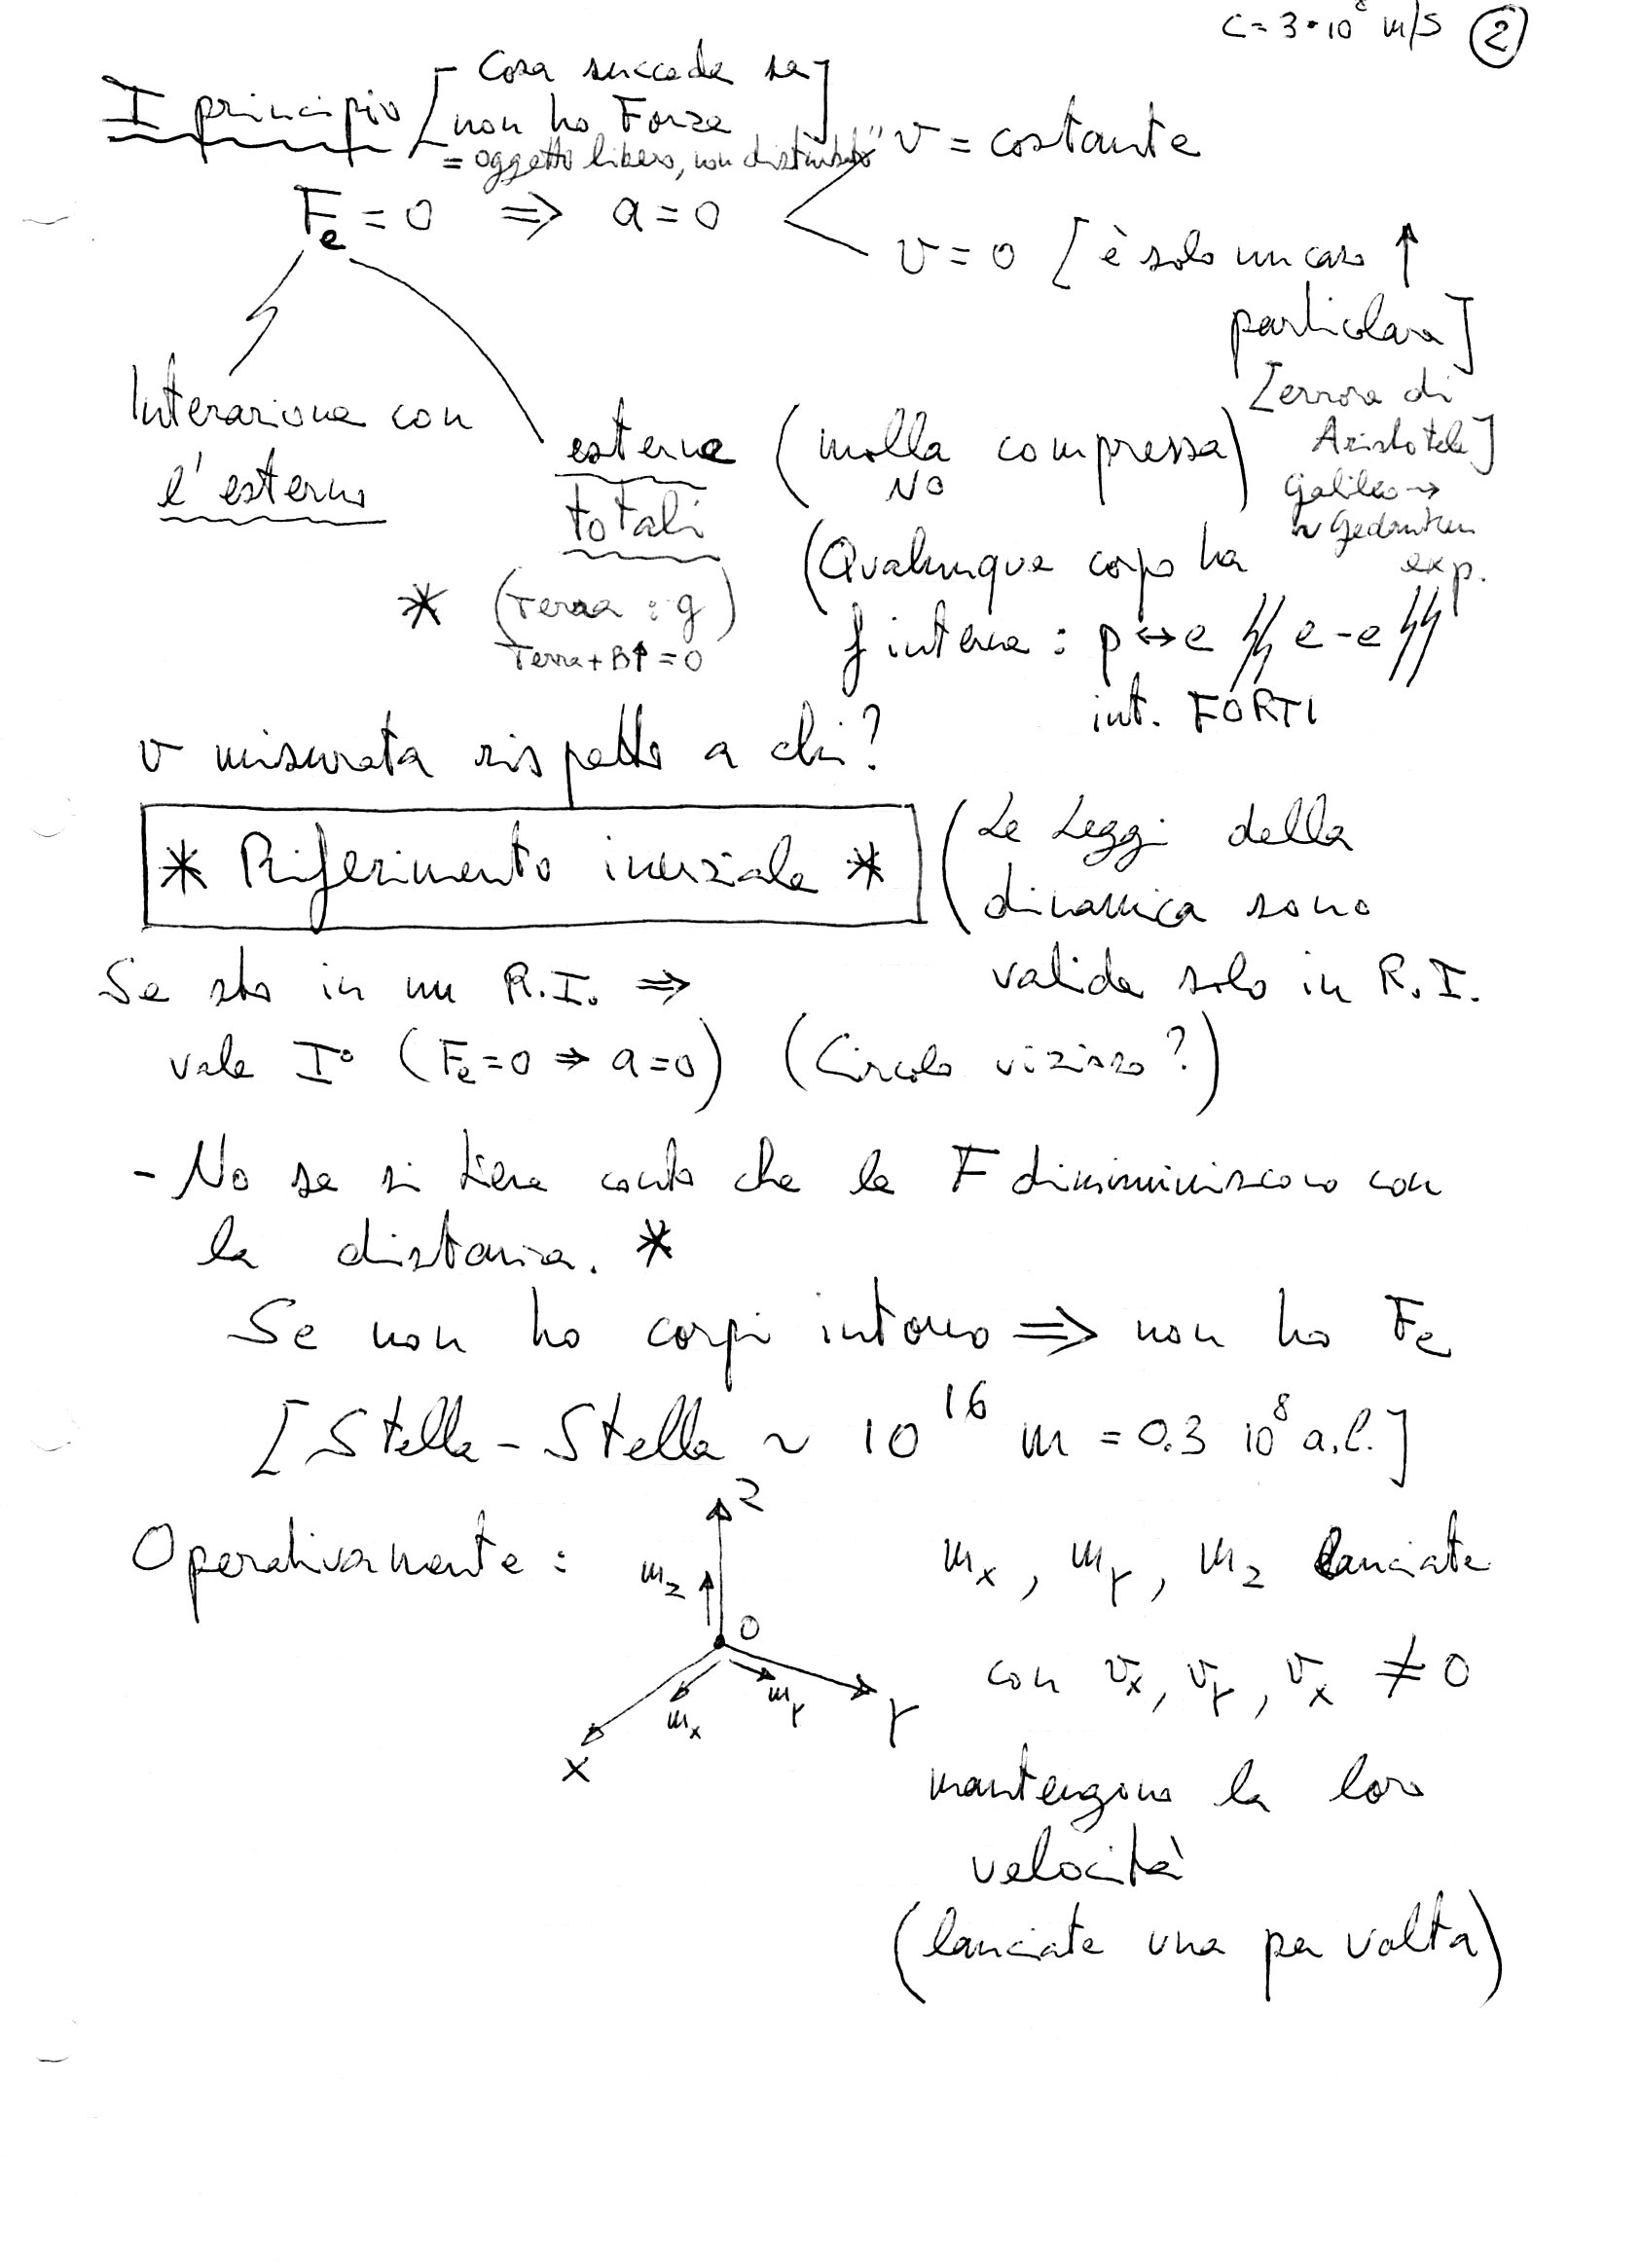 c = 3·10⁸ m/s ②
I principio [Cosa succede se
non ho Forze]
= oggetto libero, non disturbato"
v = costante
Fe = 0 ⇒ a = 0
v = 0 [è solo un caso ↑
particolare]
[errore di
Aristotele]
Galileo →
~ Gedanken
exp.
Interazione con
l'esterno
esterne (molla compressa)
NO
totali
(Qualunque corpo ha
* (Terra : g)
Terra + B↑ = 0
f interne : p ↔ e e - e
int. FORTI
v misurata rispetto a chi?
* Riferimento inerziale *
(Le Leggi della
dinamica sono
valide solo in R.I.
Se sto in un R.I. ⇒
vale I° (Fe = 0 ⇒ a = 0) (Circolo vizioso?)
- No se si tiene conto che le F diminimiscono con
la distanza. *
Se non ho corpi intorno ⇒ non ho Fe
[Stella - Stella ~ 10¹⁶ m = 0.3 10⁸ a.l.]
Operativamente :
z
mz
O
mx
my
y
x
mx, my, mz lanciate
con vx, vy, vx ≠ 0
mantengono la loro
velocità
(lanciate una per volta)